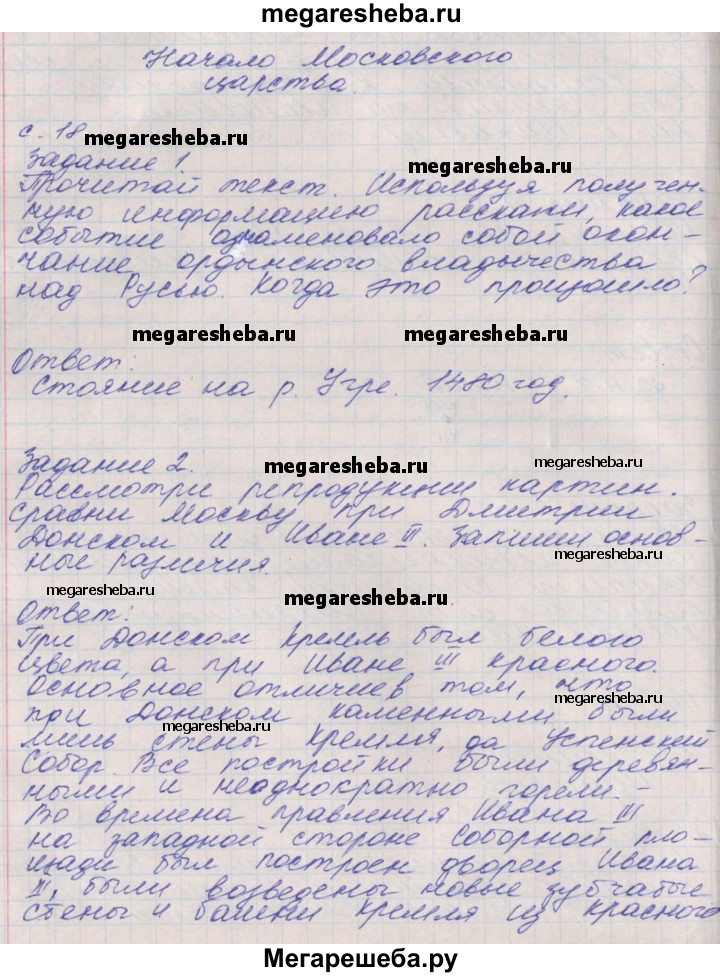 megaresheba.ru
Начало Московского
царства.
с. 18
megaresheba.ru
Задание 1
megaresheba.ru
Прочитай текст. Используя получен-
ную информацию расскажи, какое
событие ознаменовало собой окон-
чание ордынского владычества
над Русью. Когда это произошло?
megaresheba.ru megaresheba.ru
Ответ:
Стояние на р. Угре. 1480 год.
Задание 2.
megaresheba.ru megaresheba.ru
Рассмотри репродукции картин.
Сравни Москву при Дмитрии
Донском и Иване III. Запиши основ-
ные различия.
megaresheba.ru
megaresheba.ru megaresheba.ru
Ответ:
При Донском Кремль был белого
цвета, а при Иване III красного.
Основное отличие в том, что
megaresheba.ru
при Донском каменными были
megaresheba.ru
лишь стены Кремля, да Успенский
Собор. Все постройки были деревян-
ными и неоднократно горели. -
Во времена правления Ивана III
на западной стороне Соборной пло-
щади был построен дворец Ивана
III, были возведены новые зубчатые
стены и башни Кремля из красного
Мегарешеба.ру